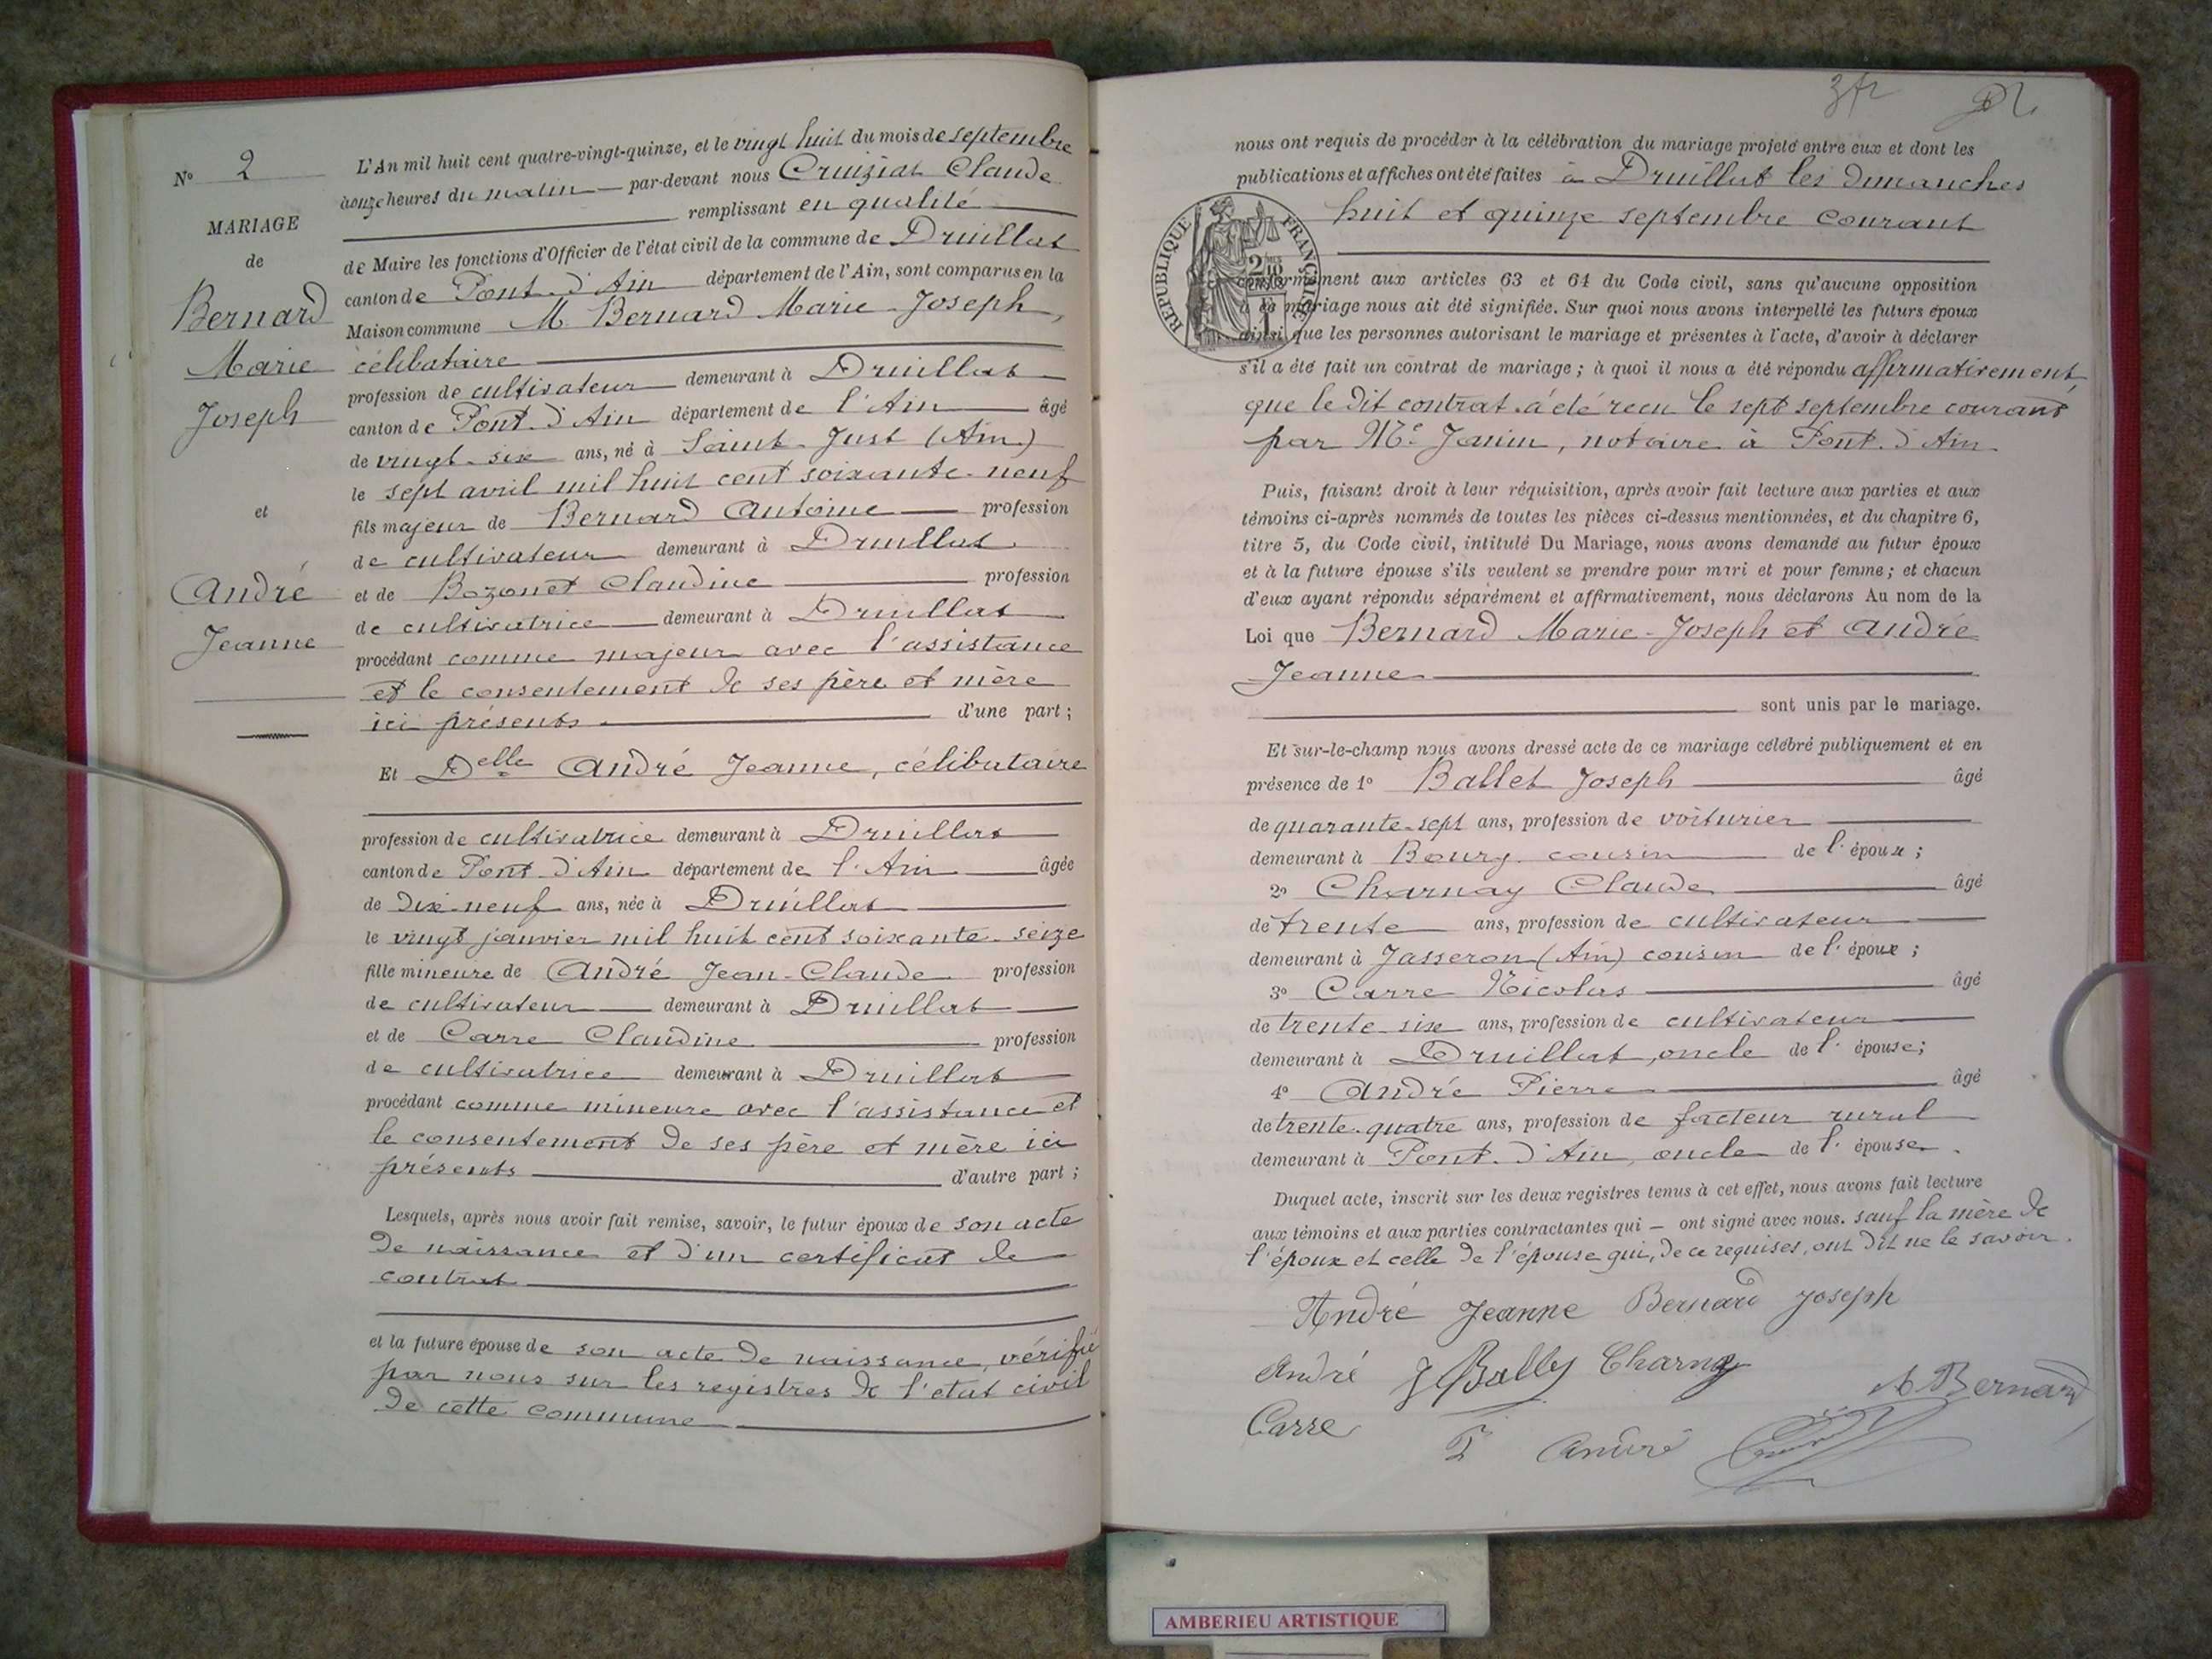 N° 2
MARIAGE
de
Bernard
Marie
Joseph
et
André
Jeanne
L'An mil huit cent quatre-vingt-quinze, et le vingt huit du mois de septembre
à onze heures du matin — par-devant nous Cruiziat Claude
remplissant en qualité
de Maire les fonctions d'Officier de l'état civil de la commune de Druillat
canton de Pont-d'Ain département de l'Ain, sont comparus en la
Maison commune M. Bernard Marie-Joseph,
célibataire
profession de cultivateur demeurant à Druillat
canton de Pont-d'Ain département de l'Ain âgé
de vingt-six ans, né à Saint-Just (Ain)
le sept avril mil huit cent soixante-neuf
fils majeur de Bernard Antoine profession
de cultivateur demeurant à Druillat
et de Bozonet Claudine profession
de cultivatrice demeurant à Druillat
procédant comme majeur avec l'assistance
et le consentement de ses père et mère
ici présents d'une part ;
Et Delle André Jeanne, célibataire
profession de cultivatrice demeurant à Druillat
canton de Pont-d'Ain département de l'Ain âgée
de dix-neuf ans, née à Druillat
le vingt janvier mil huit cent soixante-seize
fille mineure de André Jean-Claude profession
de cultivateur demeurant à Druillat
et de Carre Claudine profession
de cultivatrice demeurant à Druillat
procédant comme mineure avec l'assistance et
le consentement de ses père et mère ici
présents d'autre part ;
Lesquels, après nous avoir fait remise, savoir, le futur époux de son acte
de naissance et d'un certificat de
contrat
et la future épouse de son acte de naissance, vérifié
par nous sur les registres de l'état civil
de cette commune
3fr
nous ont requis de procéder à la célébration du mariage projeté entre eux et dont les
publications et affiches ont été faites à Druillat les dimanches
huit et quinze septembre courant
RÉPUBLIQUE FRANÇAISE
conformément aux articles 63 et 64 du Code civil, sans qu'aucune opposition
à ce mariage nous ait été signifiée. Sur quoi nous avons interpellé les futurs époux
ainsi que les personnes autorisant le mariage et présentes à l'acte, d'avoir à déclarer
s'il a été fait un contrat de mariage ; à quoi il nous a été répondu affirmativement,
que le dit contrat a été reçu le sept septembre courant
par Me Janin, notaire à Pont-d'Ain
Puis, faisant droit à leur réquisition, après avoir fait lecture aux parties et aux
témoins ci-après nommés de toutes les pièces ci-dessus mentionnées, et du chapitre 6,
titre 5, du Code civil, intitulé Du Mariage, nous avons demandé au futur époux
et à la future épouse s'ils veulent se prendre pour mari et pour femme ; et chacun
d'eux ayant répondu séparément et affirmativement, nous déclarons Au nom de la
Loi que Bernard Marie-Joseph et André
Jeanne
sont unis par le mariage.
Et sur-le-champ nous avons dressé acte de ce mariage célébré publiquement et en
présence de 1° Ballet Joseph âgé
de quarante-sept ans, profession de voiturier
demeurant à Bourg cousin de l'époux ;
2° Charnay Claude âgé
de trente ans, profession de cultivateur
demeurant à Jasseron (Ain) cousin de l'époux ;
3° Carre Nicolas âgé
de trente-six ans, profession de cultivateur
demeurant à Druillat, oncle de l'épouse ;
4° André Pierre âgé
de trente-quatre ans, profession de facteur rural
demeurant à Pont-d'Ain, oncle de l'épouse.
Duquel acte, inscrit sur les deux registres tenus à cet effet, nous avons fait lecture
aux témoins et aux parties contractantes qui — ont signé avec nous. sauf la mère de
l'époux et celle de l'épouse qui, de ce requises, ont dit ne le savoir.
André Jeanne Bernard Joseph
André J Bally Charnay
A Bernard
Carre André
AMBERIEU ARTISTIQUE